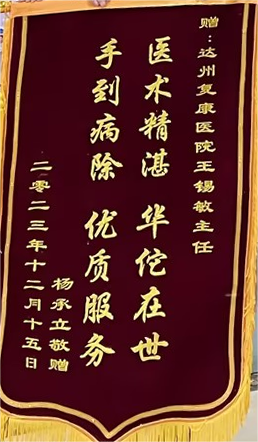 赠：达州复康医院王锡敏主任
医术精湛 华佗在世
手到病除 优质服务
杨承立敬赠
二零二三年十二月十五日